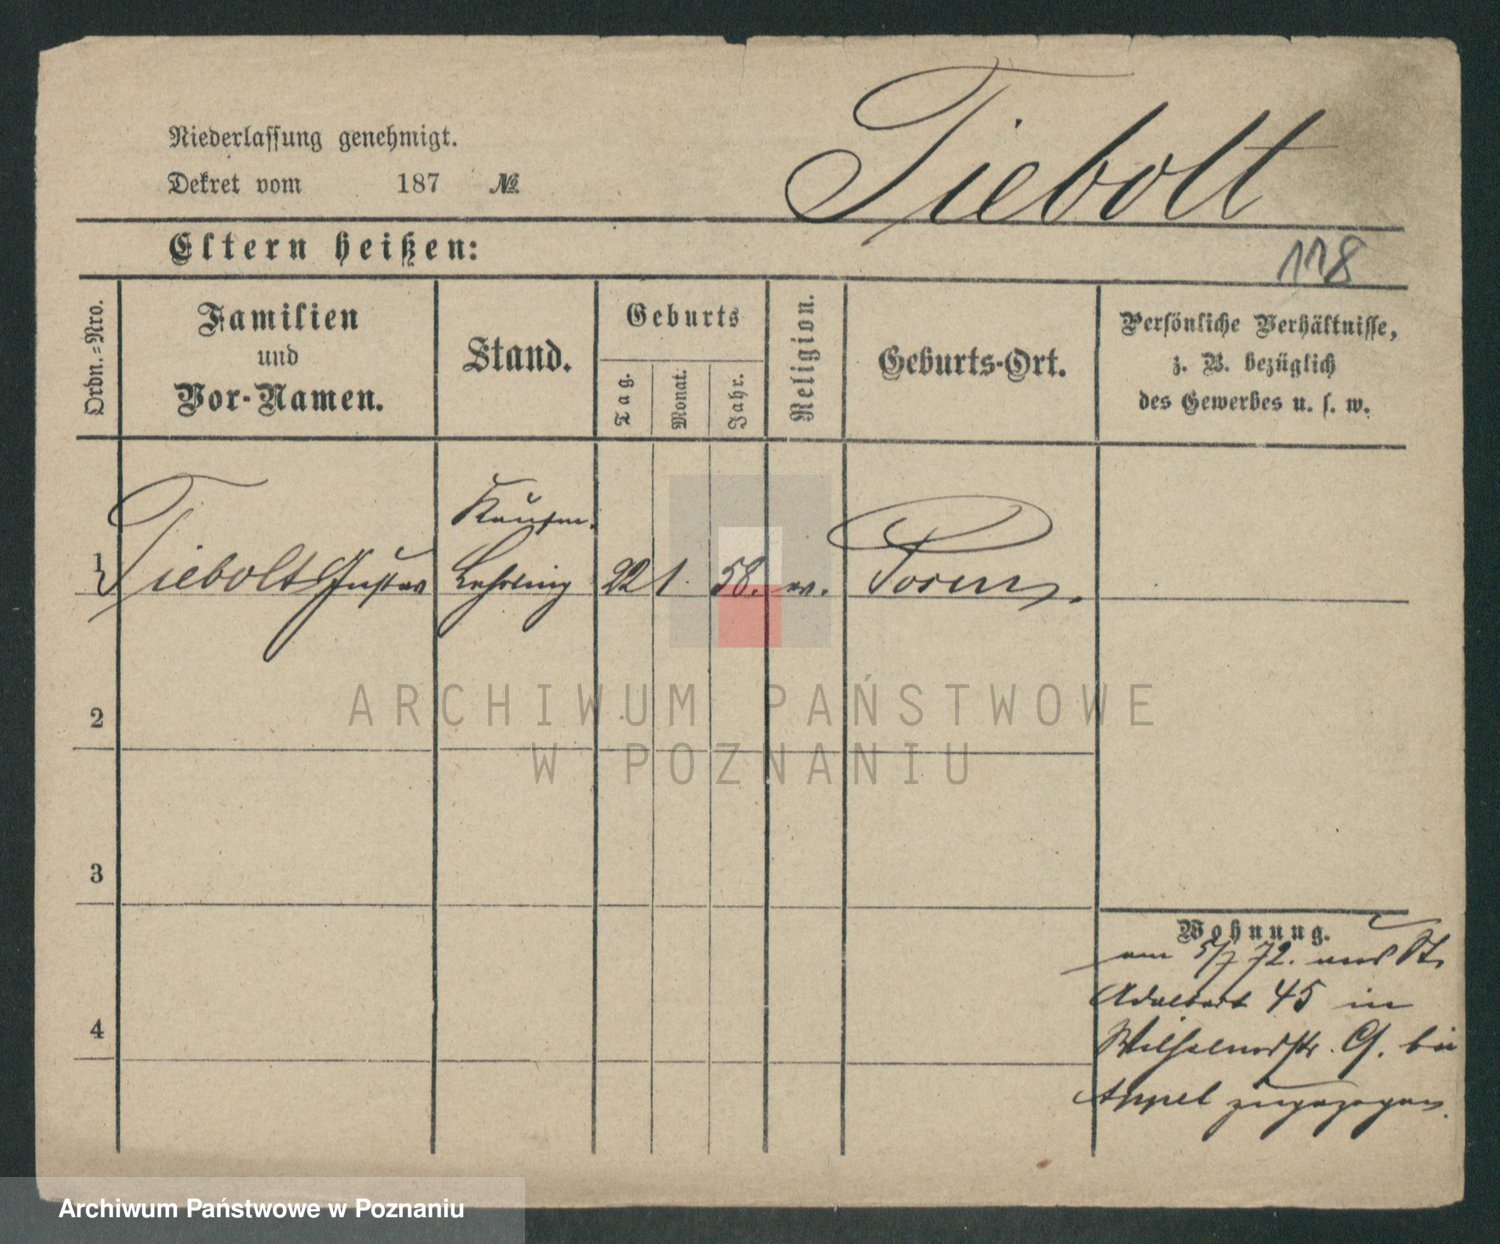 Tiebolt
Niederlassung genehmigt.
Dekret vom 187 №
Eltern heißen:
118
Ordn.=Nro.
Familien
und
Vor-Namen.
Stand.
Geburts
Tag.
Monat.
Jahr.
Religion.
Geburts-Ort.
Persönliche Verhältnisse,
z. B. bezüglich
des Gewerbes u. s. w.
Kaufm.
1 Tiebolt Gustav Lehrling 22 1. 58. Posen.
2
3
4
Wohnung.
am 5/7 72. aus St.
Adalbert 45 in
Wilhelmstr. 9. bei
Appel zugezogen.
ARCHIWUM PAŃSTWOWE
W POZNANIU
Archiwum Państwowe w Poznaniu